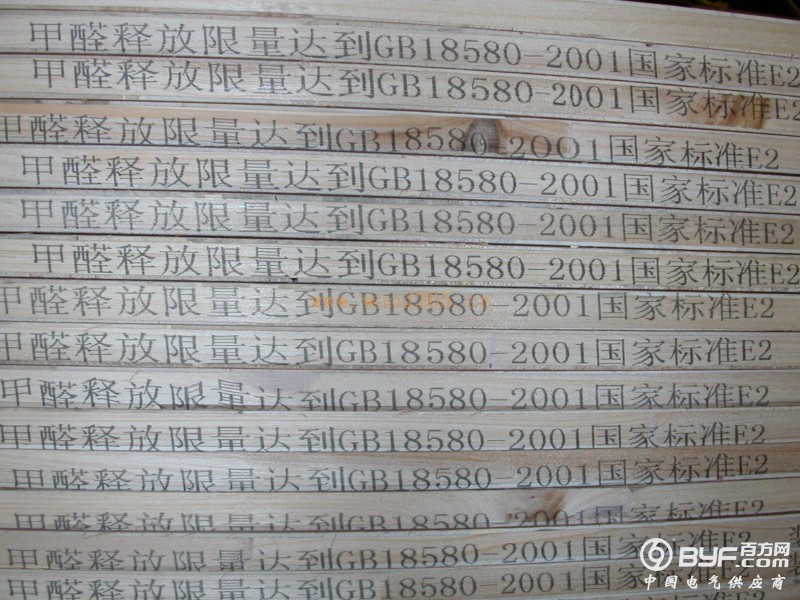 甲醛释放限量达到GB18580-2001国家标准E2
甲醛释放限量达到GB18580-2001国家标准E2
甲醛释放限量达到GB18580-2001国家标准E2
甲醛释放限量达到GB18580-2001国家标准E2
甲醛释放限量达到GB18580-2001国家标准E2
甲醛释放限量达到GB18580-2001国家标准E2
甲醛释放限量达到GB18580-2001国家标准E2
甲醛释放限量达到GB18580-2001国家标准E2
甲醛释放限量达到GB18580-2001国家标准E2
甲醛释放限量达到GB18580-2001国家标准E2
甲醛释放限量达到GB18580-2001国家标准E2
甲醛释放限量达到GB18580-2001国家标准E2
甲醛释放限量达到GB18580-2001国家标准
甲醛释放限量达到GB18580-2001国家标准E2
BYF.com 百方网
中国电气供应商